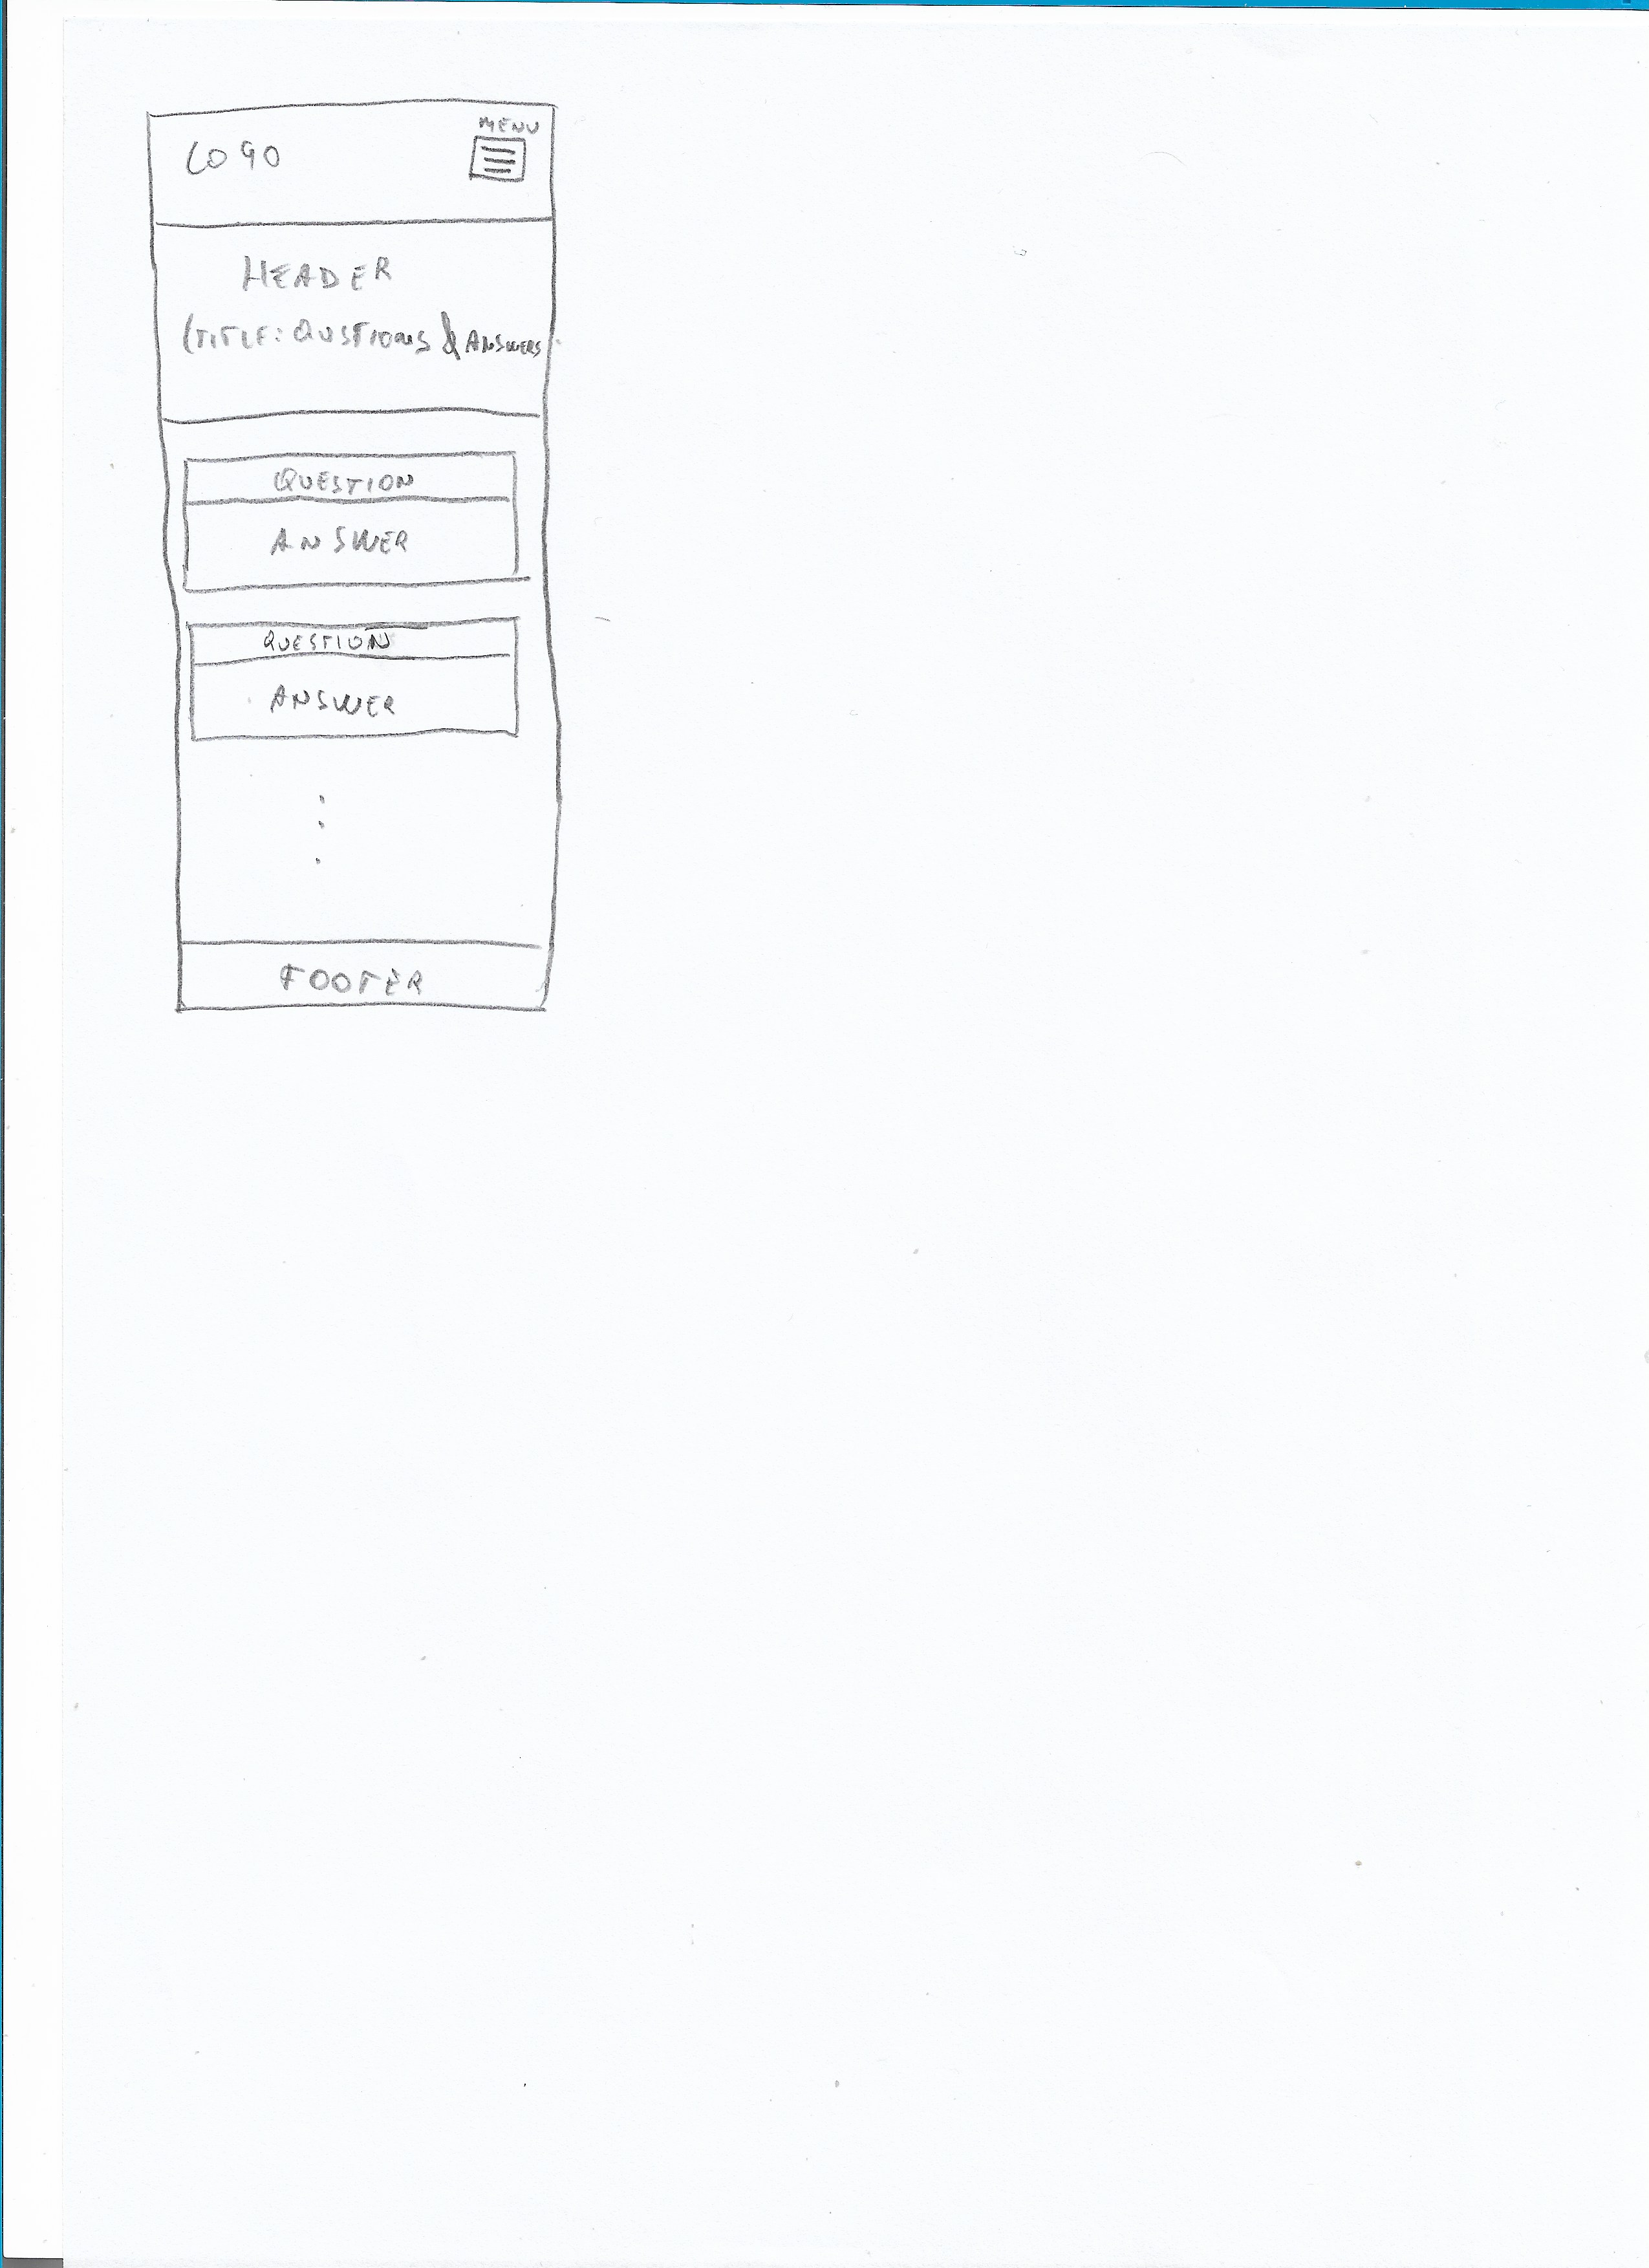 MENU
LOGO
HEADER
(TITLE: QUSTIONS & ANSWERS
QUESTION
ANSWER
QUESTION
ANSWER
FOOTER